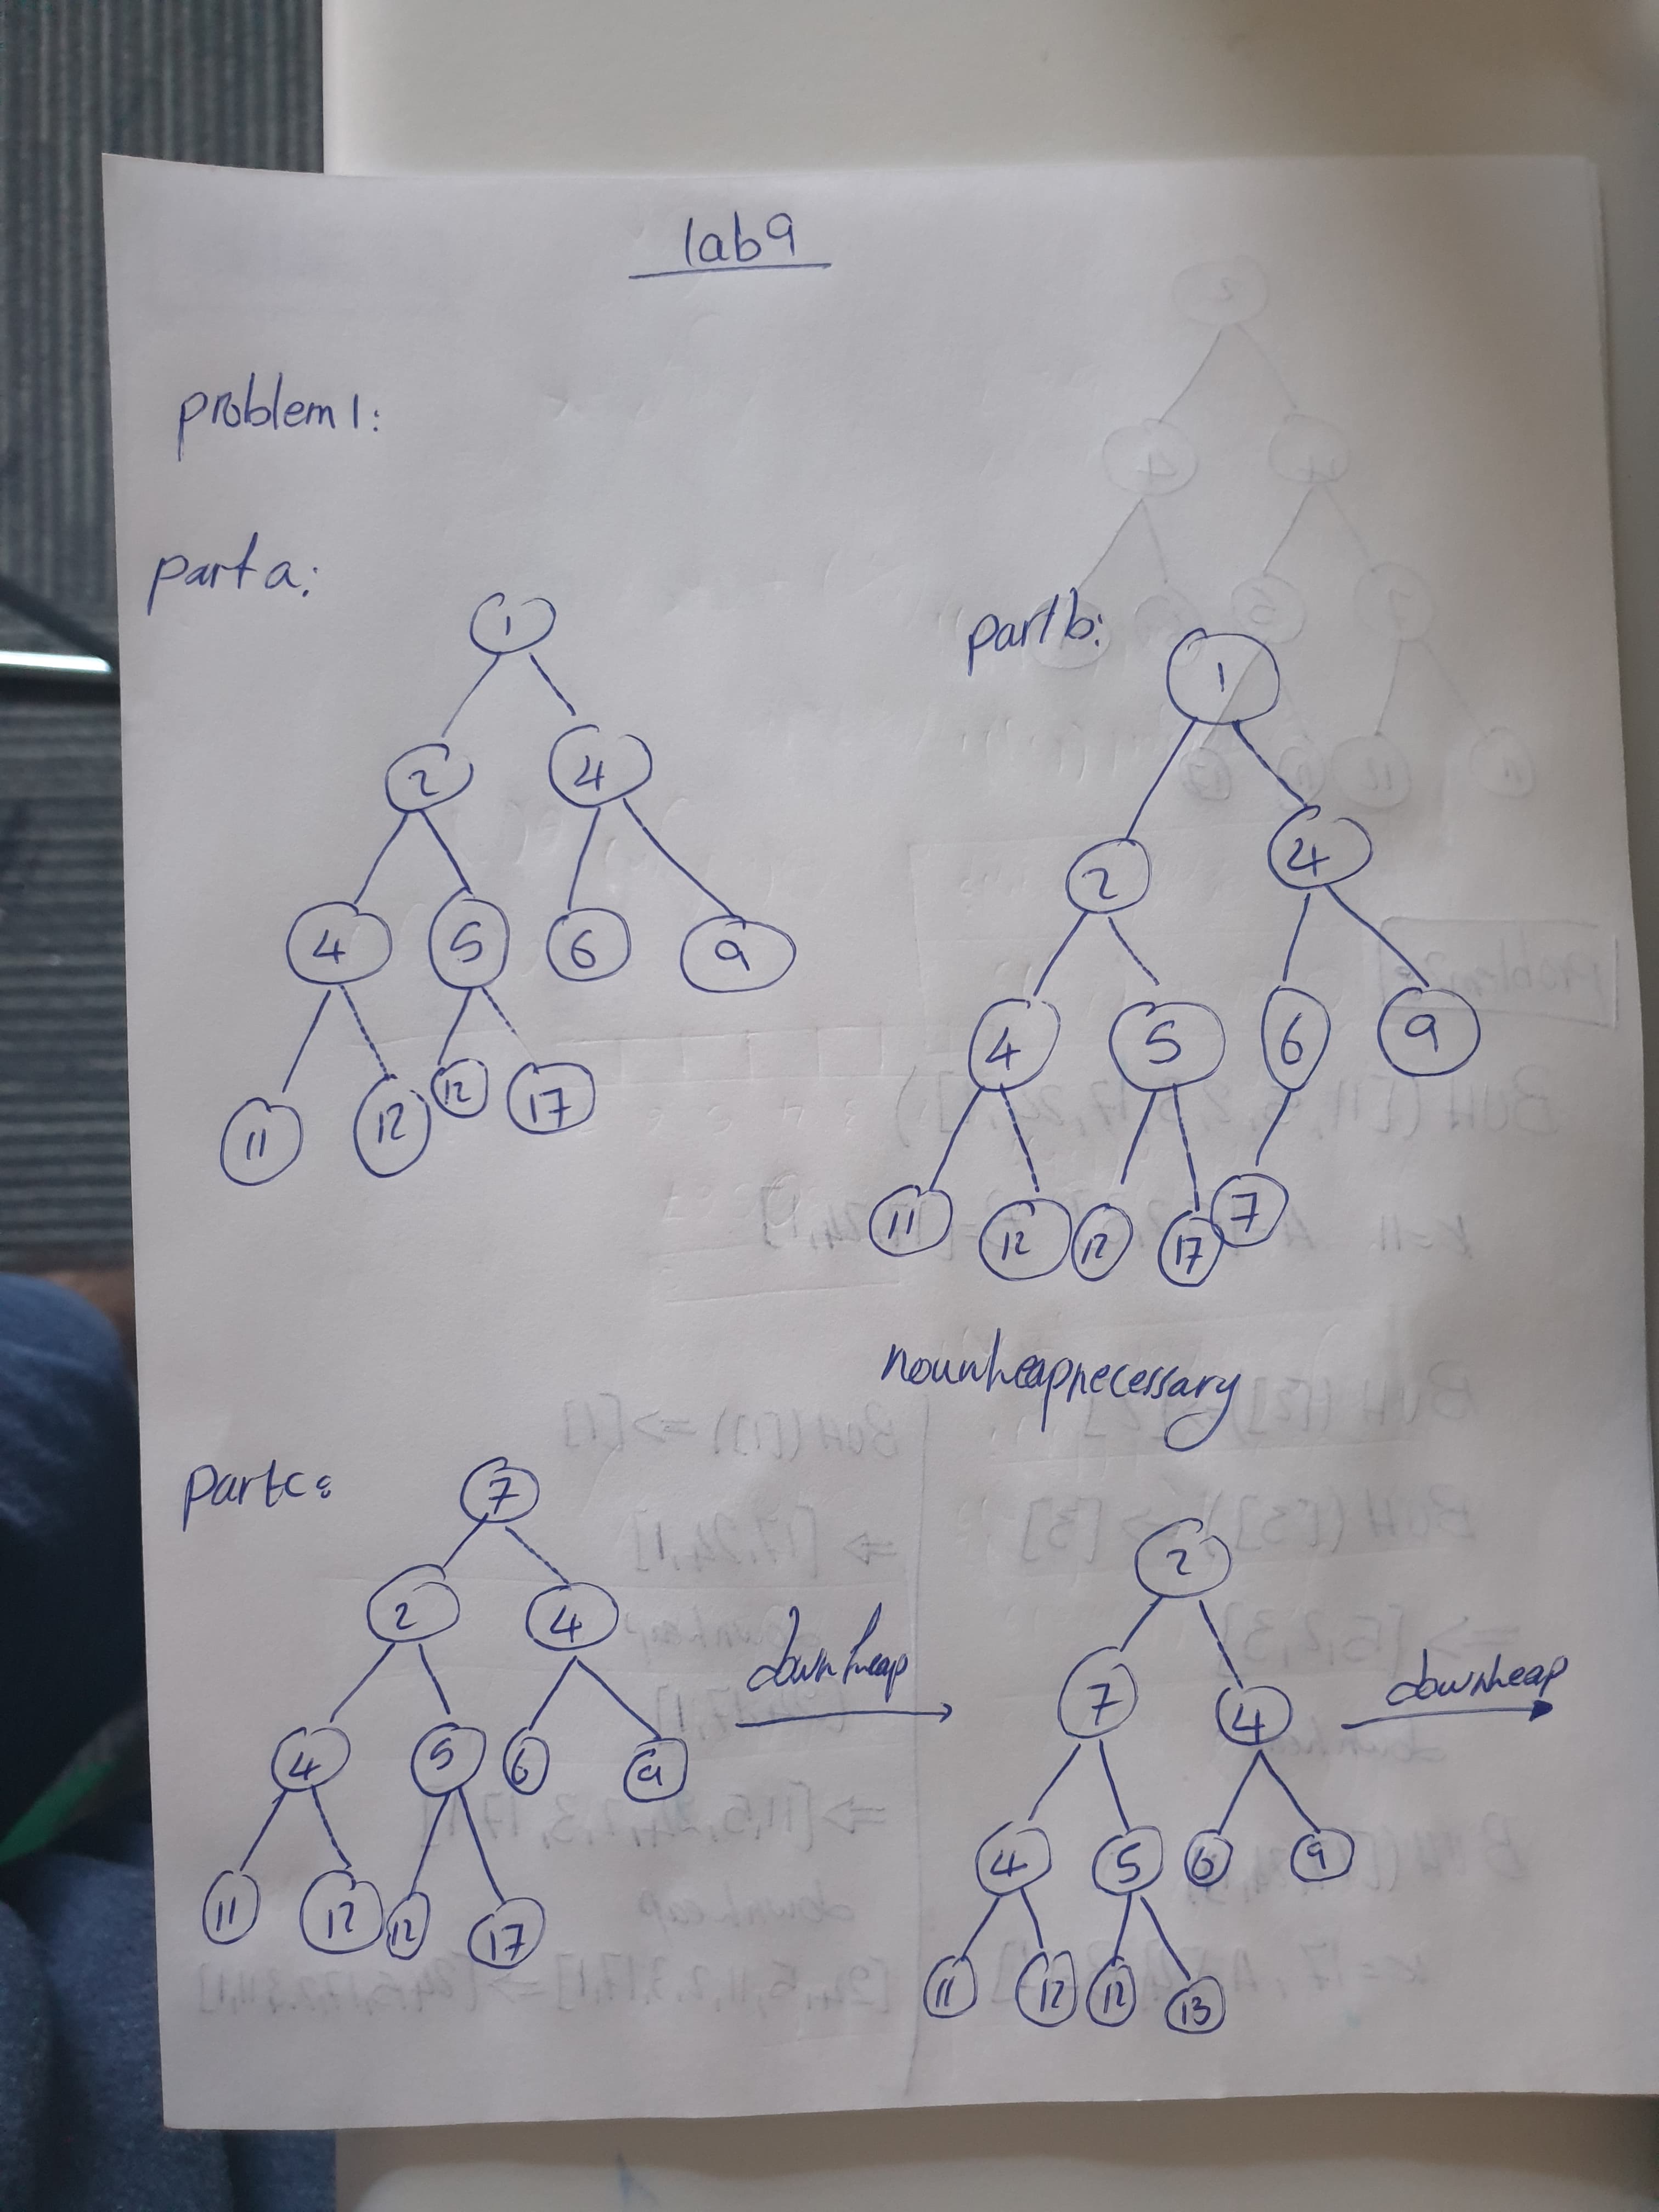 lab9
problem1:
part a:
1
2 4
4 5 6 9
11 12 12 17
part b:
1
2 4
4 5 6 9
11 12 12 17 7
no upheap necessary
part c:
7
2 4
4 5 6 9
11 12 12 17
downheap
2
7 4
4 5 6 9
11 12 12 13
downheap